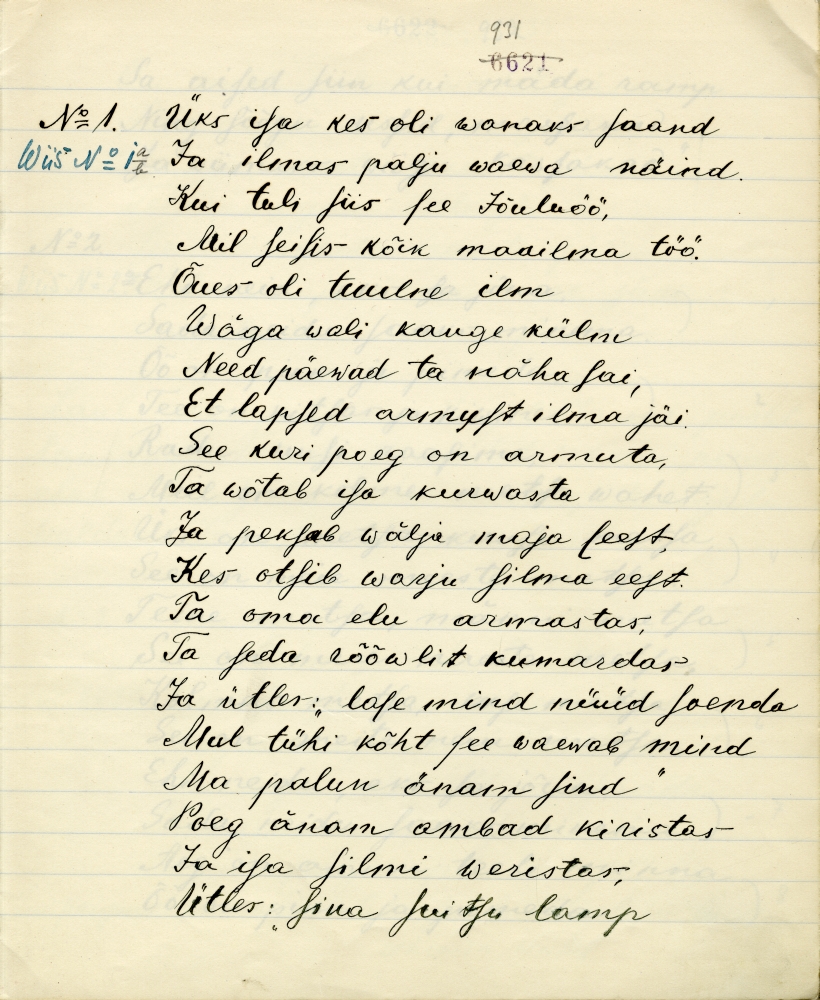 931
6621
№ 1. Üks isa kes oli wanaks saand
Wiis № 1 a/b Ja ilmas palju waewa näind.
Kui tuli siis see Jõuluöö,
Mil seisis kõik maailma töö.
Õues oli tuulne ilm
Wäga wali kange külm
Need päewad ta näha sai,
Et lapsed armust ilma jäi.
See kuri poeg on armuta,
Ta wõtab isa kurwasta
Ja peksab wälja maja seest,
Kes otsib warju silma eest.
Ta oma elu armastas,
Ta seda rööwlit kumardas
Ja ütles: „lase mind nüüd soenda
Mul tühi kõht see waewab mind
Ma palun änam sind"
Poeg änam ambad kiristas
Ja isa silmi weristas,
Ütles: „sina suitsu lamp